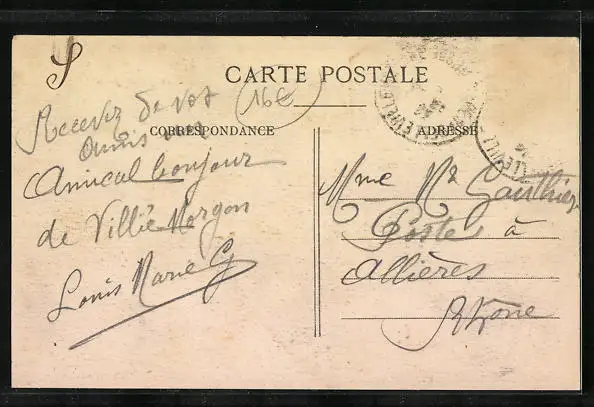 CARTE POSTALE
16€
CORRESPONDANCE
ADRESSE
Recevez de vos
amis un
amical bonjour
de Villié Morgon
Louis Marie G
Mme Gauthier
Poste à
Allières
Rhône